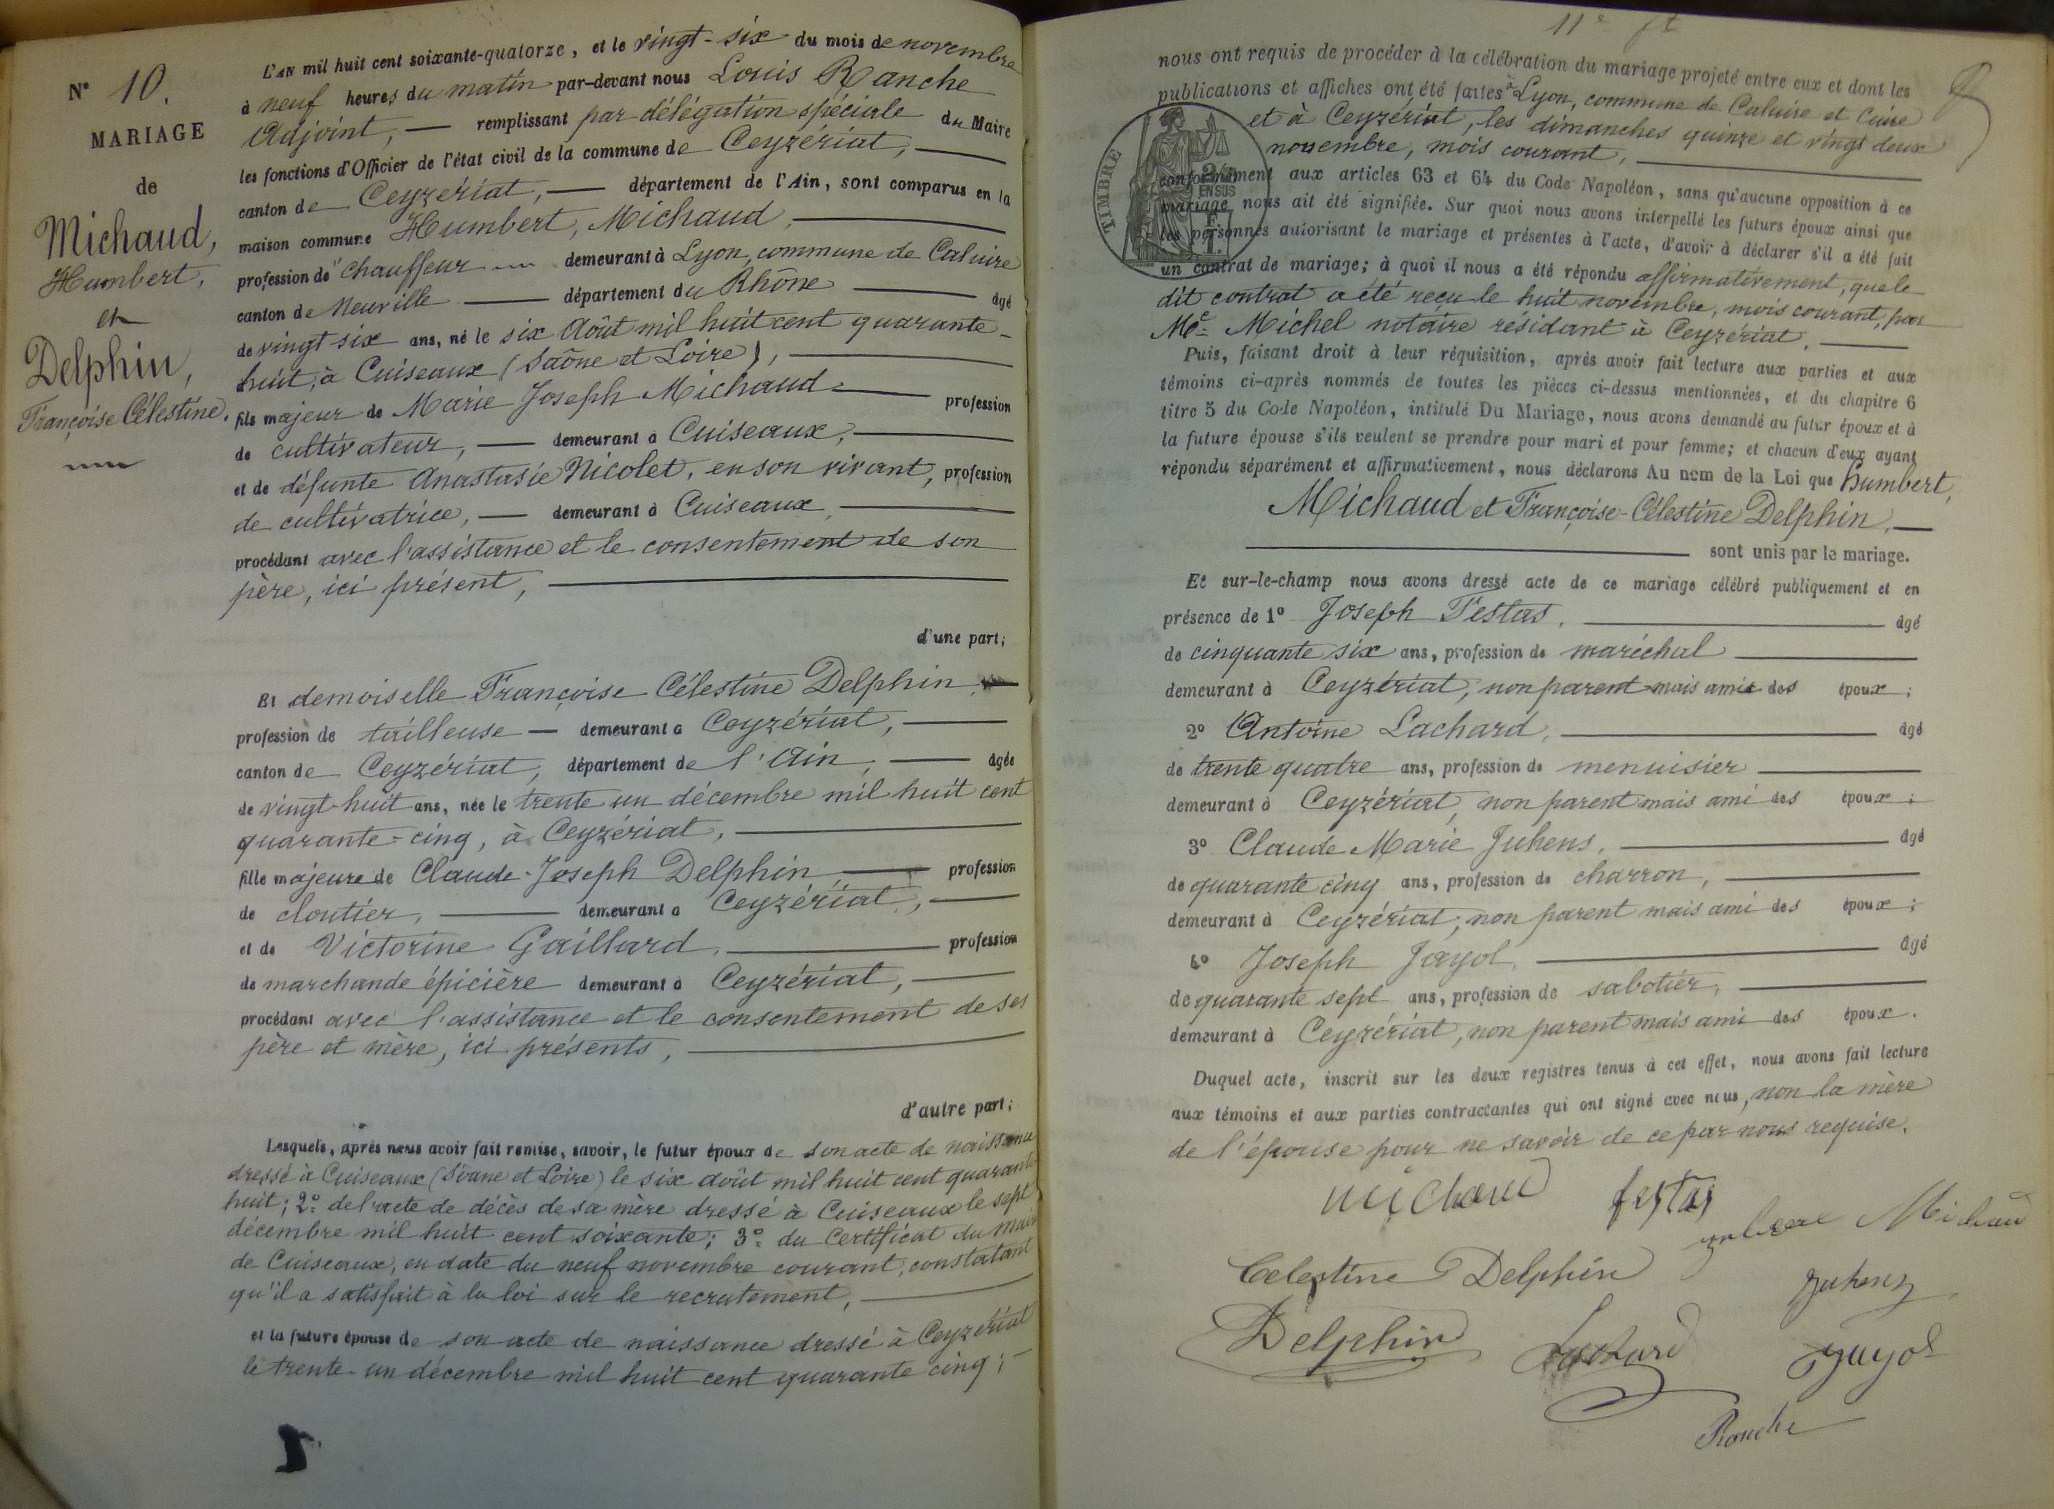 N° 10.
MARIAGE
de
Michaud,
Humbert,
et
Delphin,
Françoise Célestine.
L'AN mil huit cent soixante-quatorze, et le vingt-six du mois de novembre
à neuf heures du matin par-devant nous Louis Ranche
Adjoint, — remplissant par délégation spéciale du Maire
les fonctions d'Officier de l'état civil de la commune de Ceyzériat, —
canton de Ceyzériat, — département de l'Ain, sont comparus en la
maison commune Humbert, Michaud, —
profession de chauffeur demeurant à Lyon, commune de Caluire
canton de Neuville — département du Rhône — âgé
de vingt-six ans, né le six Août mil huit cent quarante-
huit, à Cuiseaux (Saône et Loire), —
fils majeur de Marie Joseph Michaud — profession
de cultivateur, — demeurant à Cuiseaux, —
et de défunte Anastasie Nicolet, en son vivant, profession
de cultivatrice, — demeurant à Cuiseaux, —
procédant avec l'assistance et le consentement de son
père, ici présent, —
d'une part;
Et demoiselle Françoise Célestine Delphin, —
profession de tailleuse — demeurant à Ceyzériat, —
canton de Ceyzériat, département de l'Ain, — âgée
de vingt-huit ans, née le trente un décembre mil huit cent
quarante-cinq, à Ceyzériat, —
fille majeure de Claude-Joseph Delphin — profession
de cloutier, — demeurant à Ceyzériat, —
et de Victorine Gaillard, — profession
de marchande épicière demeurant à Ceyzériat, —
procédant avec l'assistance et le consentement de ses
père et mère, ici présents, —
d'autre part;
Lesquels, après nous avoir fait remise, savoir, le futur époux de son acte de naissance
dressé à Cuiseaux (Sâone et Loire) le six août mil huit cent quarante
huit; 2° de l'acte de décès de sa mère dressé à Cuiseaux le sept
décembre mil huit cent soixante; 3° du Certificat du Maire
de Cuiseaux, en date du neuf novembre courant, constatant
qu'il a satisfait à la loi sur le recrutement, —
et la future épouse de son acte de naissance dressé à Ceyzériat
le trente-un décembre mil huit cent quarante cinq; —
11e ft
nous ont requis de procéder à la célébration du mariage projeté entre eux et dont les
publications et affiches ont été faites à Lyon, commune de Caluire et Cuire
et à Ceyzériat, les dimanches quinze et vingt deux
novembre, mois courant, —
TIMBRE
conformément aux articles 63 et 64 du Code Napoléon, sans qu'aucune opposition à ce
mariage nous ait été signifiée. Sur quoi nous avons interpellé les futurs époux ainsi que
les personnes autorisant le mariage et présentes à l'acte, d'avoir à déclarer s'il a été fait
un contrat de mariage; à quoi il nous a été répondu affirmativement, que le
dit contrat a été reçu le huit novembre, mois courant, par
Me Michel notaire résidant à Ceyzériat. —
Puis, faisant droit à leur réquisition, après avoir fait lecture aux parties et aux
témoins ci-après nommés de toutes les pièces ci-dessus mentionnées, et du chapitre 6
titre 5 du Code Napoléon, intitulé Du Mariage, nous avons demandé au futur époux et à
la future épouse s'ils veulent se prendre pour mari et pour femme; et chacun d'eux ayant
répondu séparément et affirmativement, nous déclarons Au nom de la Loi que Humbert,
Michaud et Françoise-Célestine Delphin, —
— sont unis par le mariage.
Et sur-le-champ nous avons dressé acte de ce mariage célébré publiquement et en
présence de 1° Joseph Festas, — âgé
de cinquante six ans, profession de maréchal —
demeurant à Ceyzériat, non parent mais ami des époux;
2° Antoine Lachard, — âgé
de trente quatre ans, profession de menuisier —
demeurant à Ceyzériat, non parent mais ami des époux;
3° Claude Marie Juhens, — âgé
de quarante cinq ans, profession de charron, —
demeurant à Ceyzériat, non parent mais ami des époux;
4° Joseph Jayol, — âgé
de quarante sept ans, profession de sabotier, —
demeurant à Ceyzériat, non parent mais ami des époux.
Duquel acte, inscrit sur les deux registres tenus à cet effet, nous avons fait lecture
aux témoins et aux parties contractantes qui ont signé avec nous, non la mère
de l'épouse pour ne savoir de ce par nous requise.
Michaud festas
Michaud
Celestine Delphin Juhens
Delphin Lachard Jayol
Ranche